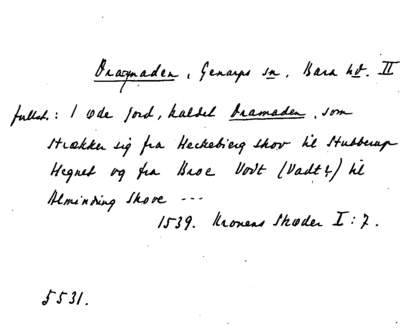 Dragmaden, Genarps sn, Bara hd. II
fullst.: 1 øde jord, kaldet Dramaden, som
strækker sig fra Heckebierg skov til Stubberup
Hegnet og fra Broe Vodt (Vadt?) til
Alminding skove ---
1539. Kronens Skøder I:7.
5531.